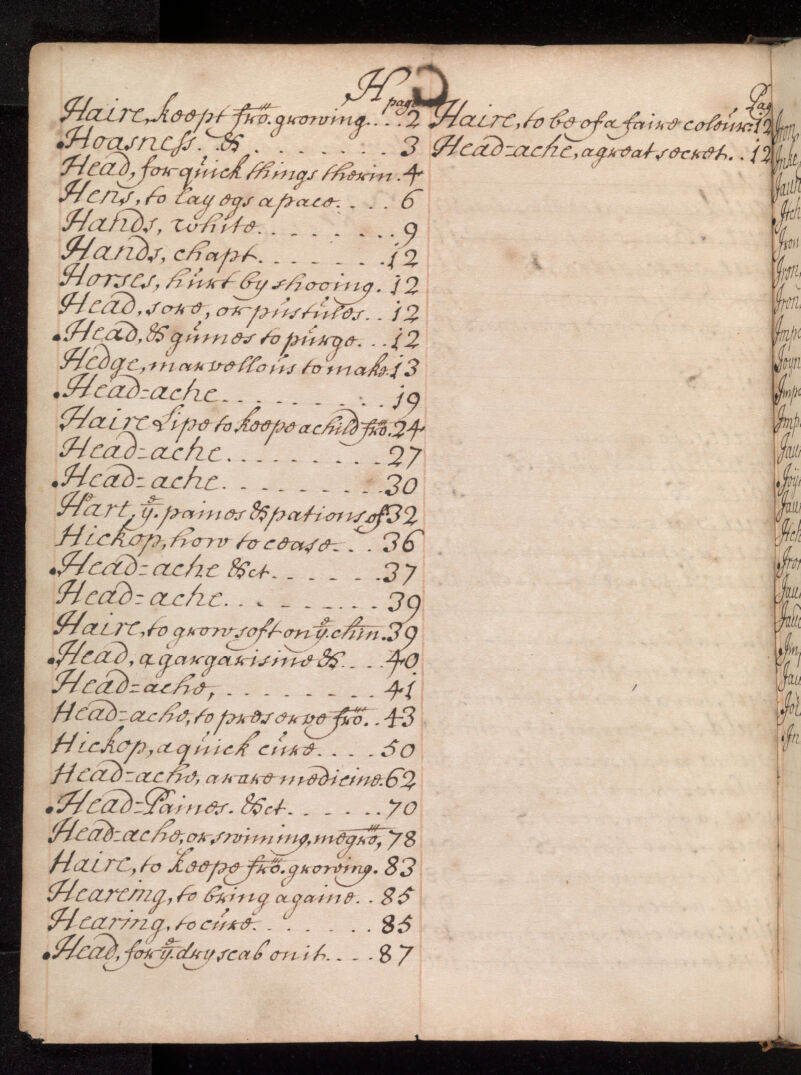 H
page
Haire, keept fro^m. growing.... 2
.Hoasness. &........ 3
Head, for quick things therin. 4
Hens, to lay egs apace.... 6
Hands, white......... 9
Hands, chapt........ 12
Horses, hurt by shooing. 12
Head, sore, or pustules.. 12
.Head, & gumes to purge... 12
Hedge, marvellous to make. 13
.Head=ache.......... 19
Haire Lipe to keepe a child fro^m. 24
Head=ache.......... 27
.Head=ache.......... 30
Hart, y^e. paines & pations of 32
Hickop, how to cease... 36
.Head=ache &ct....... 37
Head=ache.......... 39
Haire, to grow soft on y^e. chin. 39
.Head, a gargarisme &.... 40
Head=ache,......... 41
Head=ache, to preserve fro^m.. 43
Hickop, a quick cure.... 50
Head=ache, a rare medicine. 62
.Head=Paines. &ct...... 70
Head=ache, or swiming, megro^m, 78
Haire, to keepe fro^m. growing. 83
Heareing, to bring againe.. 85
Hearing, to cure........ 85
.Head, for y^e. dry scab on it.... 87
Pag
Haire, to be of a faire colour: 12
Head=ache, a great secret.. 12
Iron
Inke
Itch
Iron
Iron
Iron